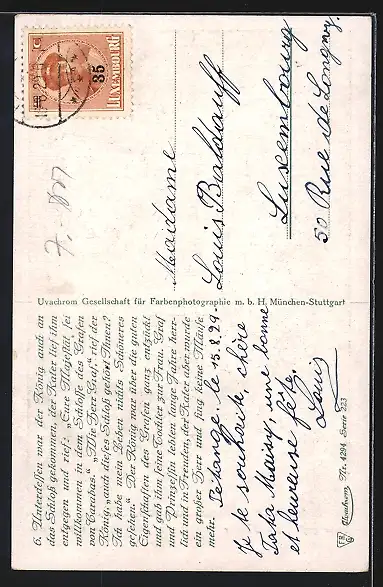 6. Unterdessen war der König auch an
das Schloß gekommen, der Kater lief ihm
entgegen und rief: „Eure Majestät sei
willkommen in dem Schlosse des Grafen
von Carabas.“ „Wie Herr Graf,“ rief der
König, „auch dieses Schloß gehört Ihnen?
Ich habe mein Leben nichts Schöneres
gesehen.“ Der König war über die guten
Eigenschaften des Grafen ganz entzückt
und gab ihm seine Tochter zur Frau. Graf
und Prinzessin lebten lange Jahre herr-
lich und in Freuden, der Kater aber wurde
ein großer Herr und fing keine Mäuse
mehr.
Pétange, le 15.8.29.
Je te souhaite, chère
Tata Maisy, une bonne
et heureuse fête.
Louis
Uvachrom, Nr. 4294 Serie 223
Uvachrom Gesellschaft für Farbenphotographie m. b. H. München-Stuttgart
LUXEMBOURG
35
Madame
Louis Baldauff
Luxembourg
50 Rue de Longwy.